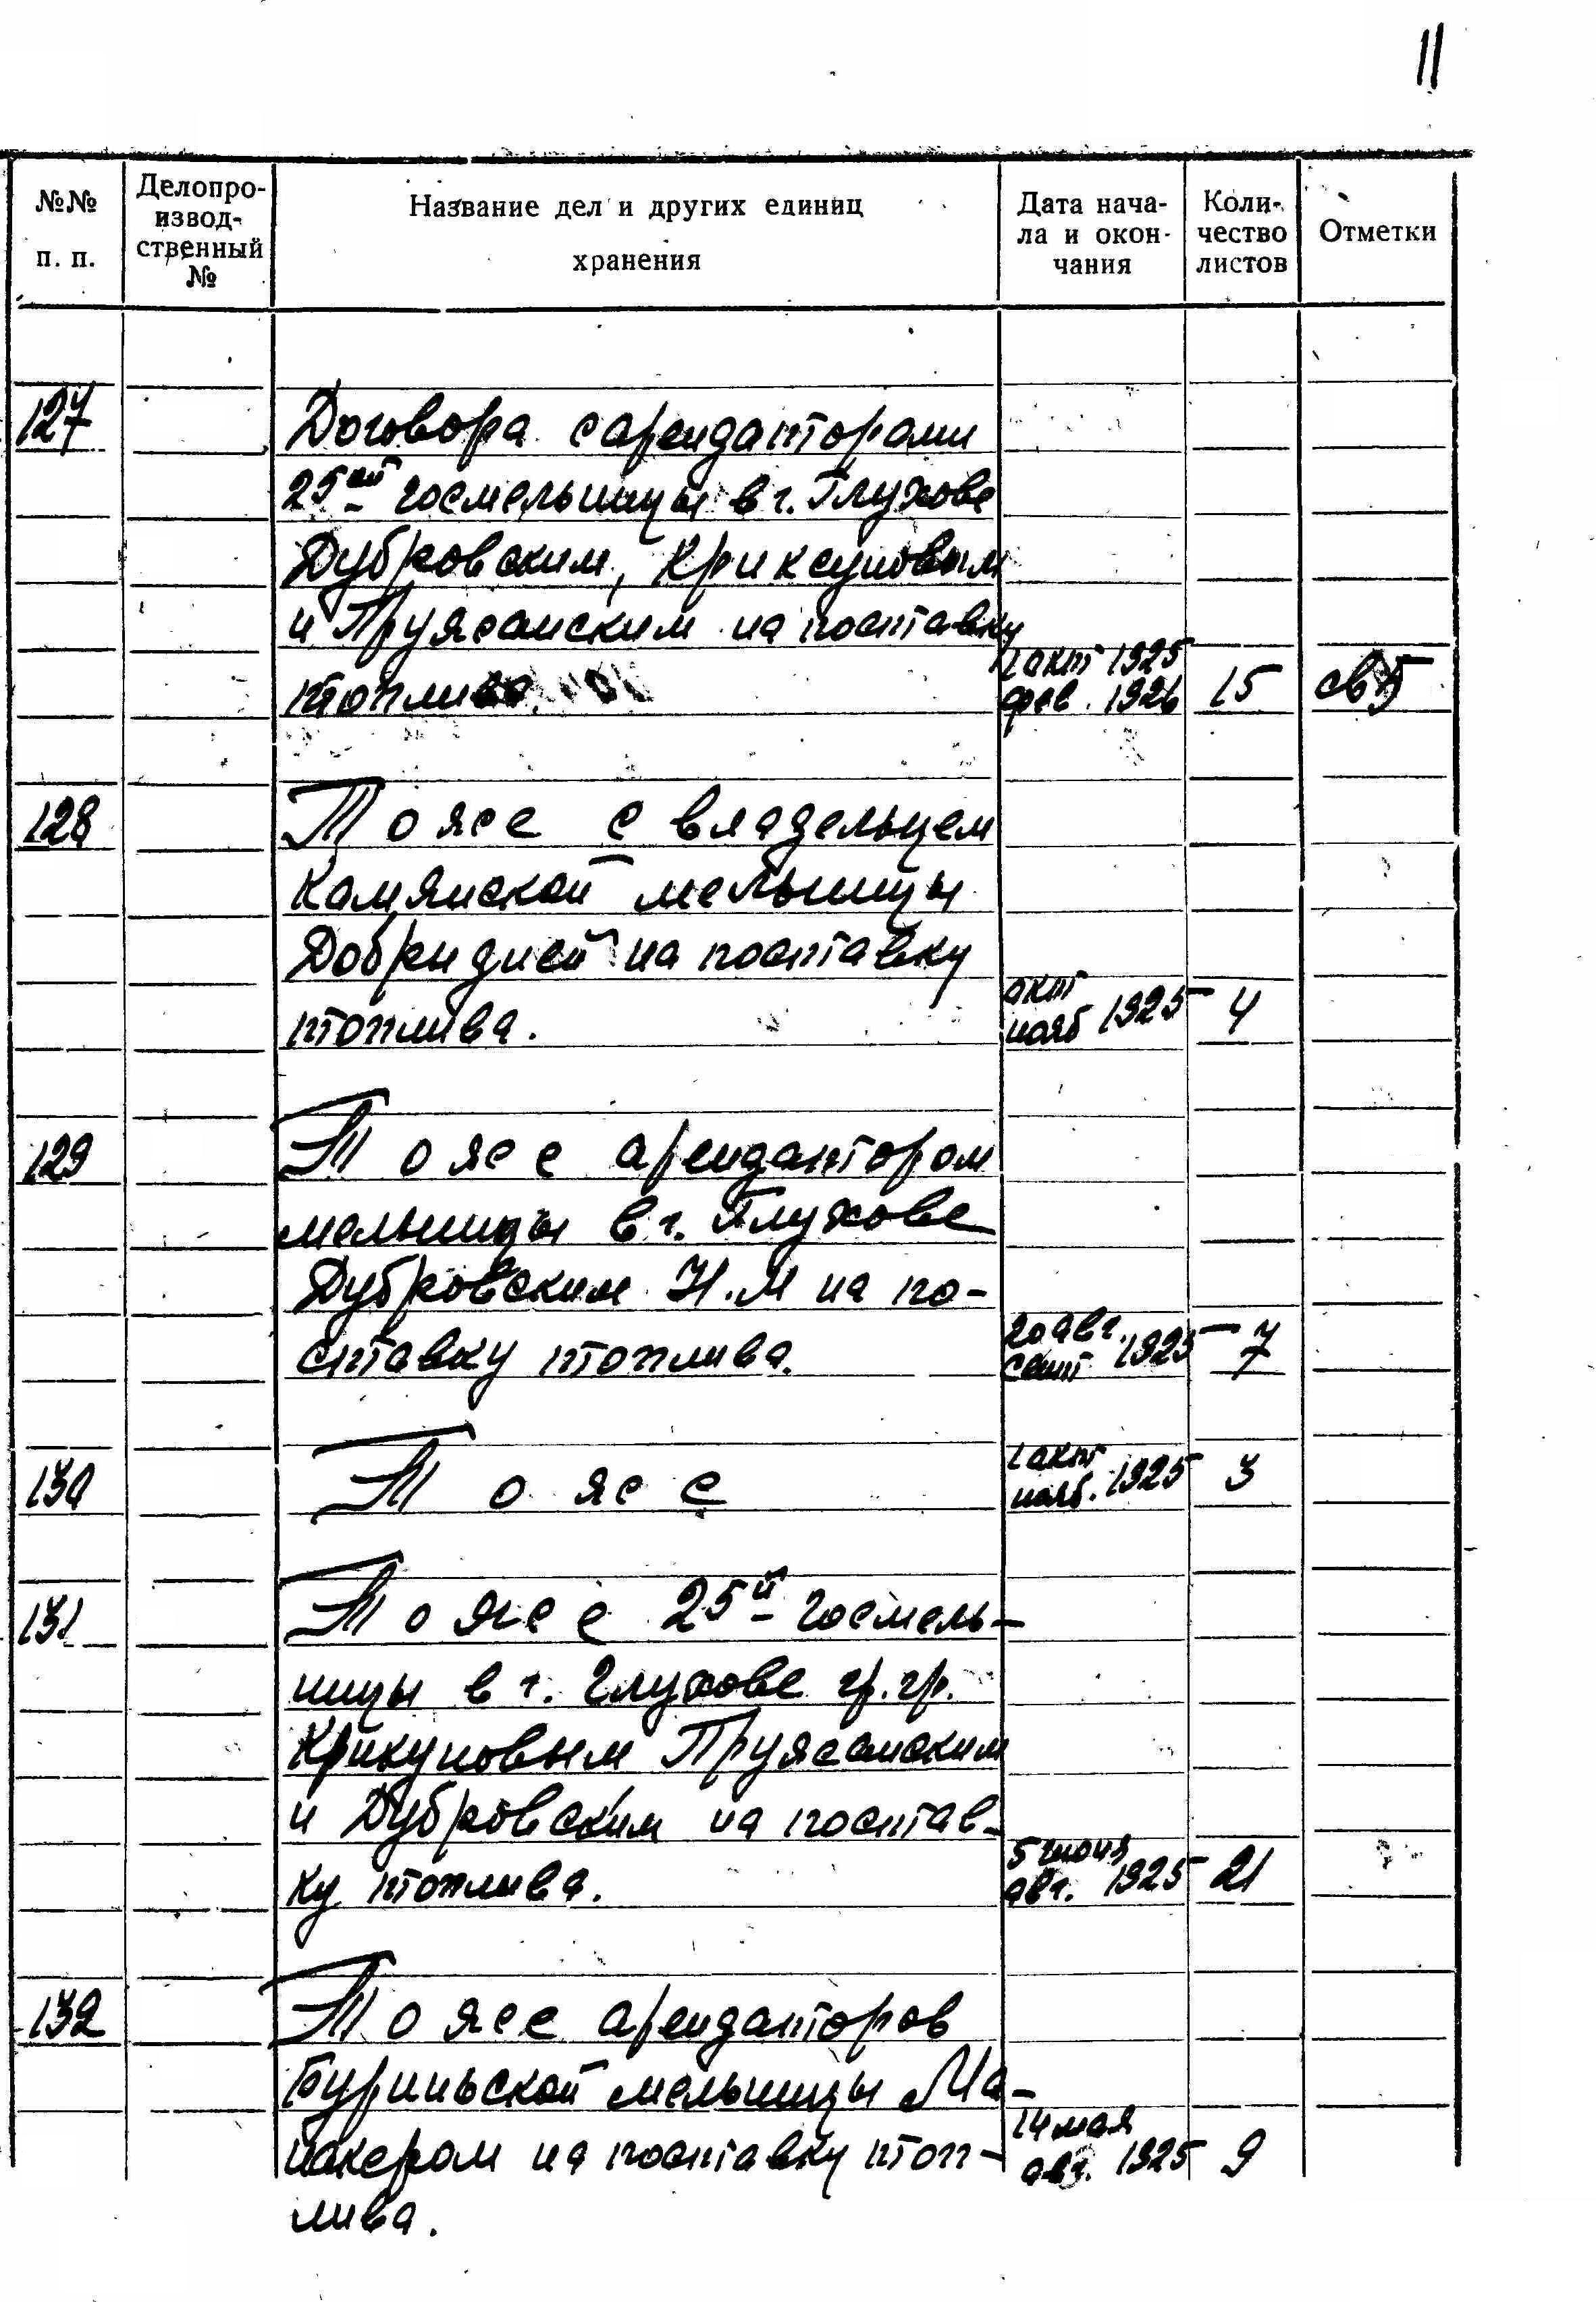 11
№№ п. п.
Делопро-
извод-
ственный
№
Название дел и других единиц
хранения
Дата нача-
ла и окон-
чания
Коли-
чество
листов
Отметки
127
Договора с арендаторами
25ой госмельницы в г. Глухове
Дубровским, Криксуновым
и Пружанским на поставку
топлива.
1 окт 1925
фев. 1926
15
128
То же с владельцем
Камянской мельницы
Добридней на поставку
топлива.
окт
нояб 1925
4
129
То же с арендатором
мельницы в г. Глухове
Дубровским Н.М на по-
ставку топлива.
20 авг.
сент 1925
7
130
То же
1 окт
нояб. 1925
3
131
То же с 25й госмель-
ницы в г. Глухове гр.гр.
Крикуновым Пружанским
и Дубровским на постав-
ку топлива.
5 июня
авг. 1925
21
132
То же арендаторов
Буриньской мельницы Ма-
накером на поставку топ-
лива.
14 мая
авг. 1925
9